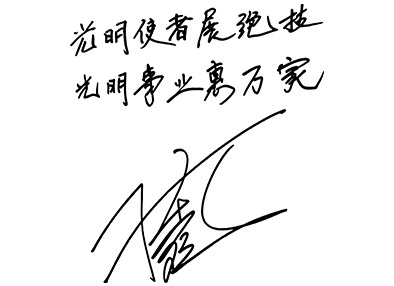 光明使者展绝技
光明事业惠万家